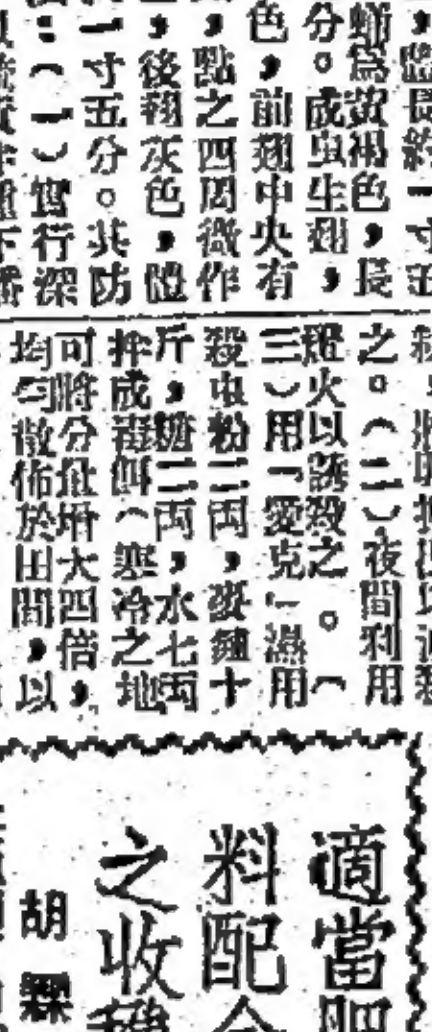 ，臨長約一寸五
蛹爲黃褐色，長
分。成虫生翅，
色，前翅中央有
，點之四周微作
，後翅灰色，體
一寸五分。其防
：（一）實行深
之。（二）夜間利用
燈火以誘殺之。（
三）用「愛克」濕用
殺虫粉二兩，麥麵十
斤，糖二兩，水七兩
拌成毒餌（寒冷之地
可將分量增大四倍，
均勻散佈於田間，以
適當肥
料配合
之收穫
胡霖